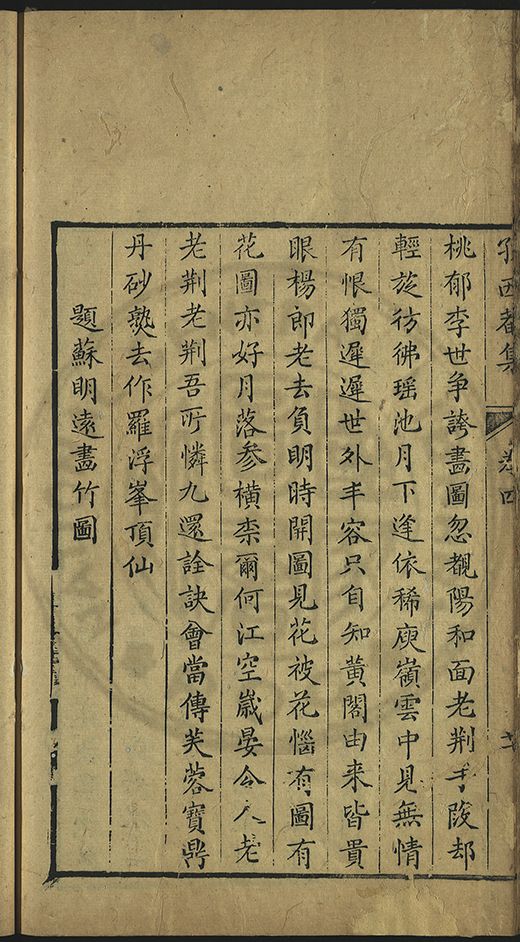 孫西菴集
卷四
桃郁李世争誇畫圖忽覩陽和面老荆手段却
輕旋彷彿瑶池月下逢依稀庾嶺雲中見無情
有恨獨遲遲世外丰容只自知黃閣由来皆貴
眼楊郎老去負明時開圖見花被花惱有圖有
花圖亦好月落参橫柰爾何江空嵗晏令人老
老荆老荆吾所憐九還詮訣會當傳芙蓉寶鼎
丹砂熟去作羅浮峯頂仙
題蘇明遠畫竹圖